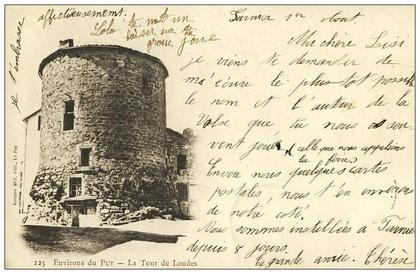 affectueusement.
Lolo te met un
baiser sur ta
grosse joue
je t'embrasse
Ma chère Lisi
je viens te demander de
m'écrire le plus tôt possible
le nom et l'auteur de la
Valse que tu nous
vent jouée (celle que nous appelions
Envoie nous quelques cartes
postales, nous t'en enverrons
de notre côté.
Nous sommes installés à
depuis 8 jours.
Ta grande amie. Thérèse
125 Environs du PUY — La Tour de Loudes